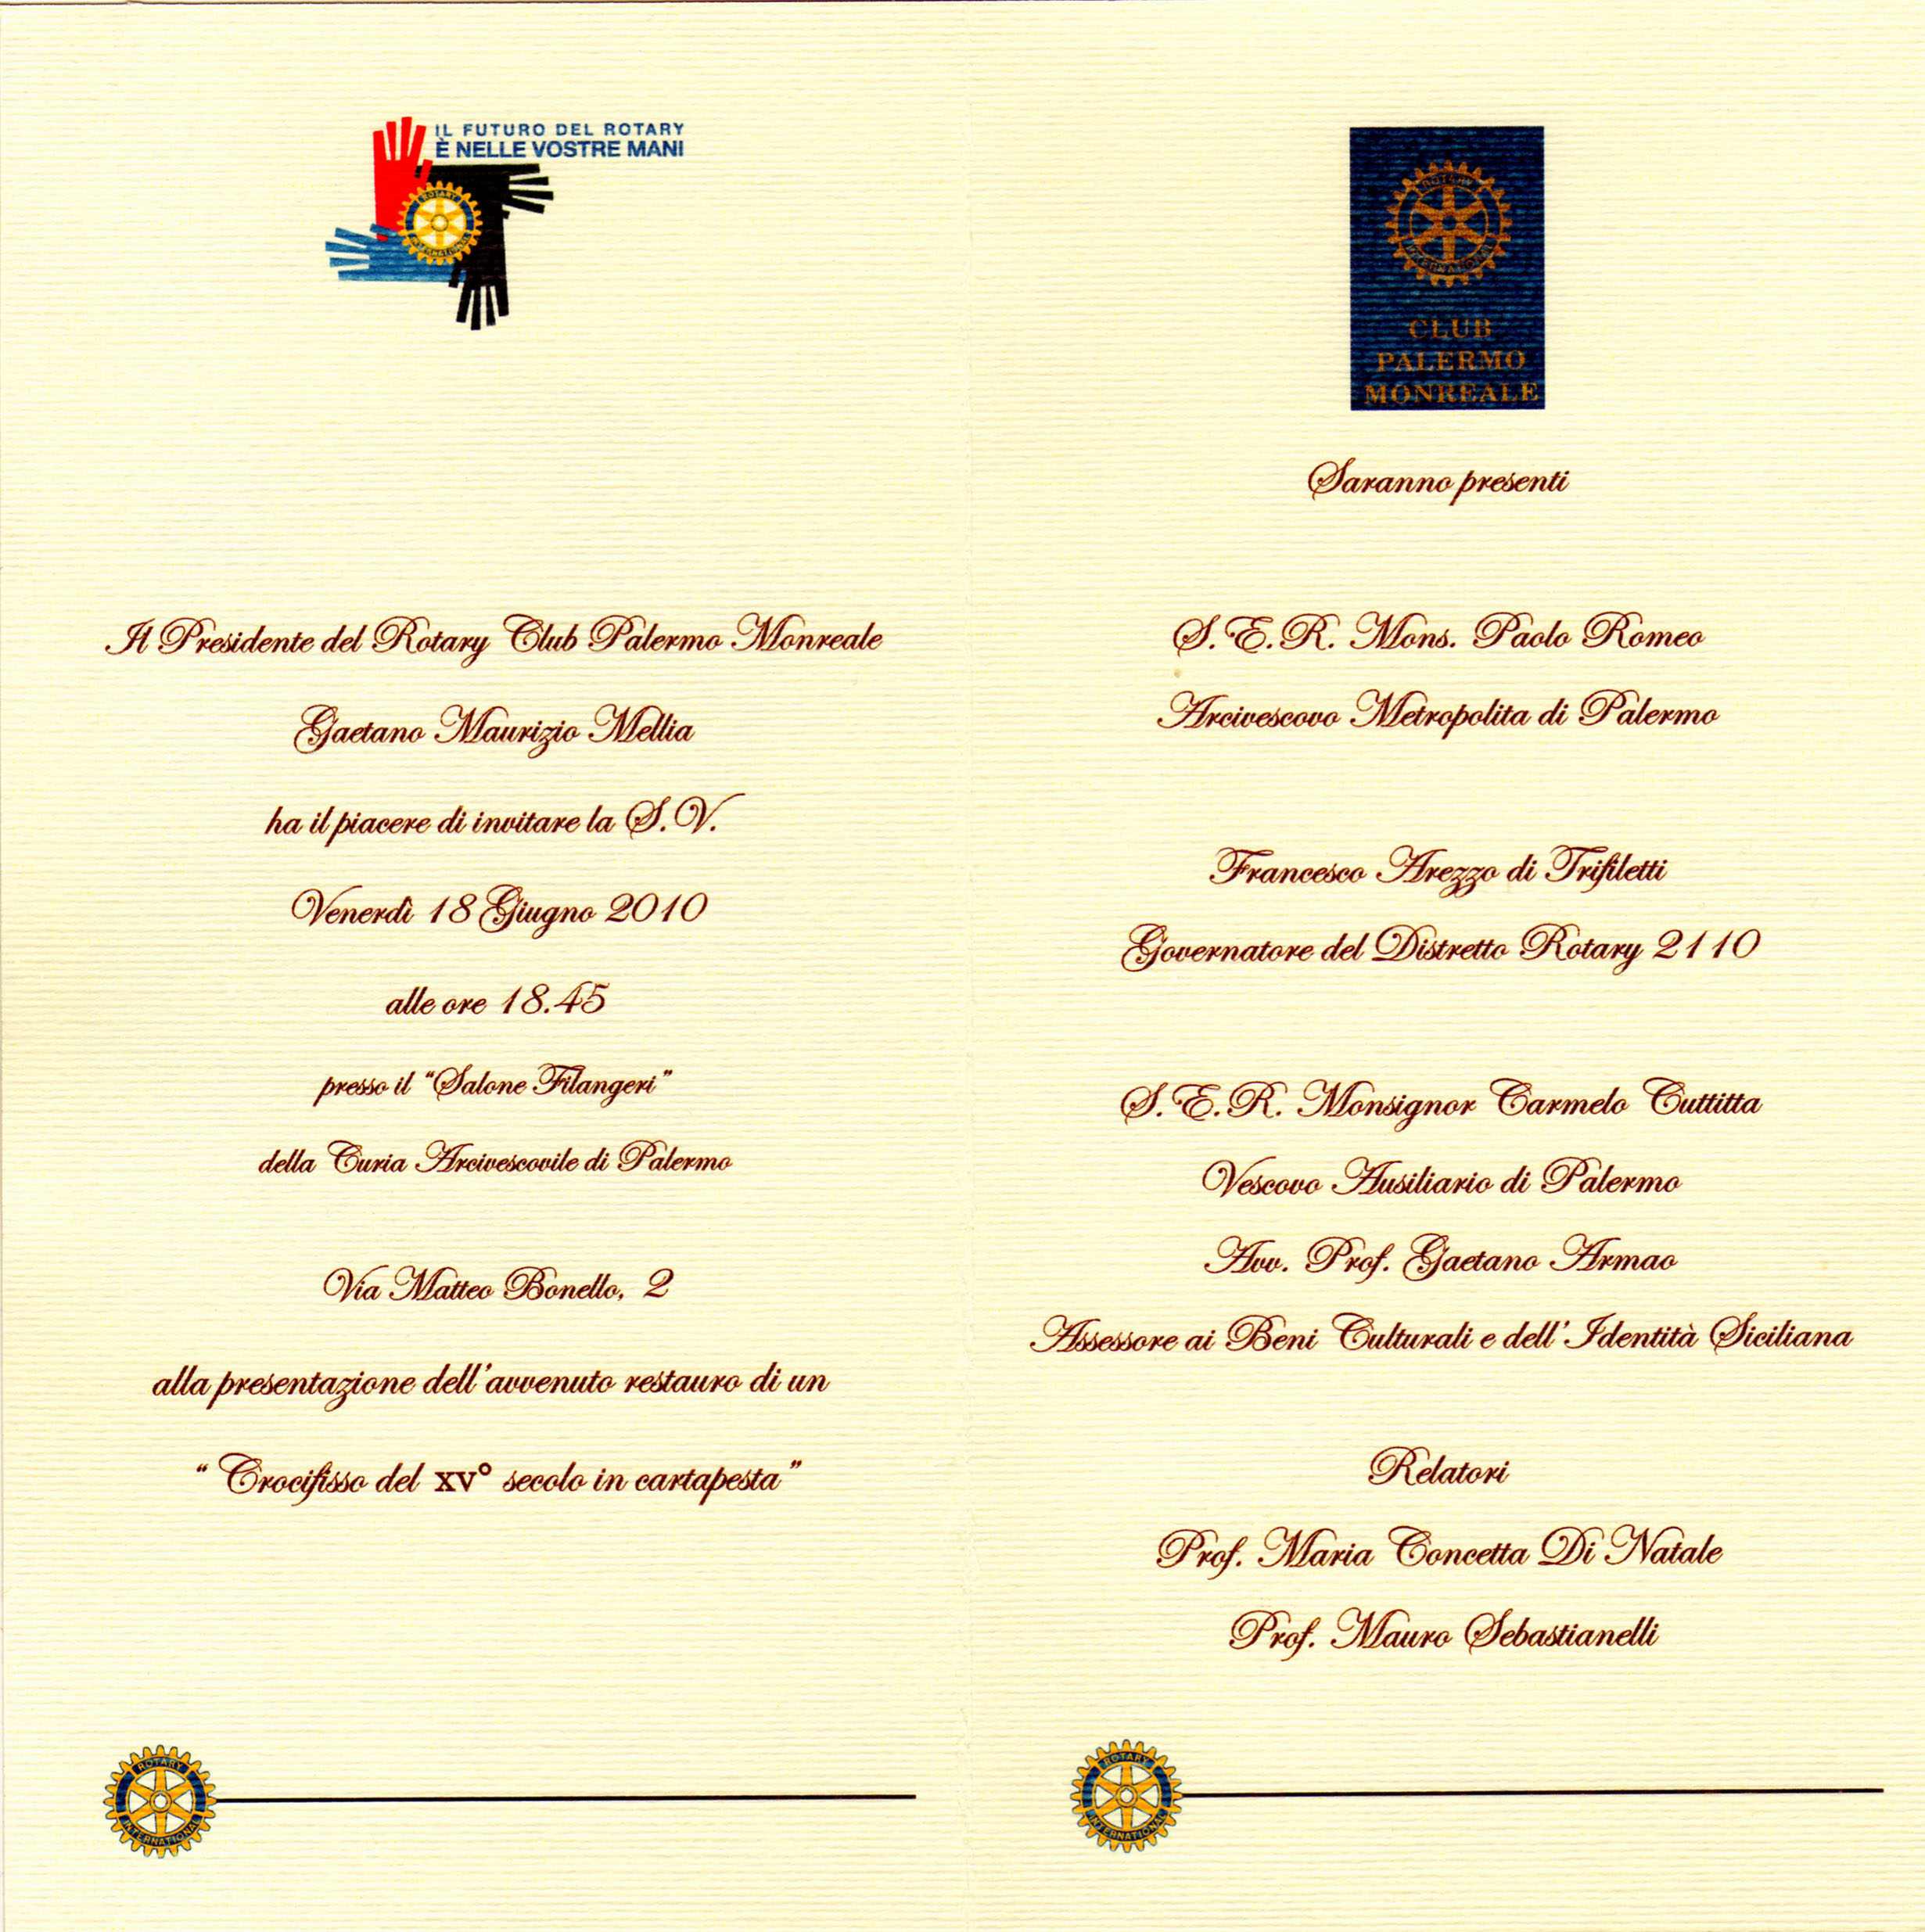 IL FUTURO DEL ROTARY
È NELLE VOSTRE MANI
ROTARY
INTERNATIONAL
Il Presidente del Rotary Club Palermo Monreale
Gaetano Maurizio Mellia
ha il piacere di invitare la S.V.
Venerdì 18 Giugno 2010
alle ore 18.45
presso il “Salone Filangeri”
della Curia Arcivescovile di Palermo
Via Matteo Bonello, 2
alla presentazione dell’avvenuto restauro di un
“Crocifisso del XV° secolo in cartapesta”
ROTARY
INTERNATIONAL
ROTARY
INTERNATIONAL
CLUB
PALERMO
MONREALE
Saranno presenti
S.E.R. Mons. Paolo Romeo
Arcivescovo Metropolita di Palermo
Francesco Arezzo di Trifiletti
Governatore del Distretto Rotary 2110
S.E.R. Monsignor Carmelo Cuttitta
Vescovo Ausiliario di Palermo
Avv. Prof. Gaetano Armao
Assessore ai Beni Culturali e dell’Identità Siciliana
Relatori
Prof. Maria Concetta Di Natale
Prof. Mauro Sebastianelli
ROTARY
INTERNATIONAL